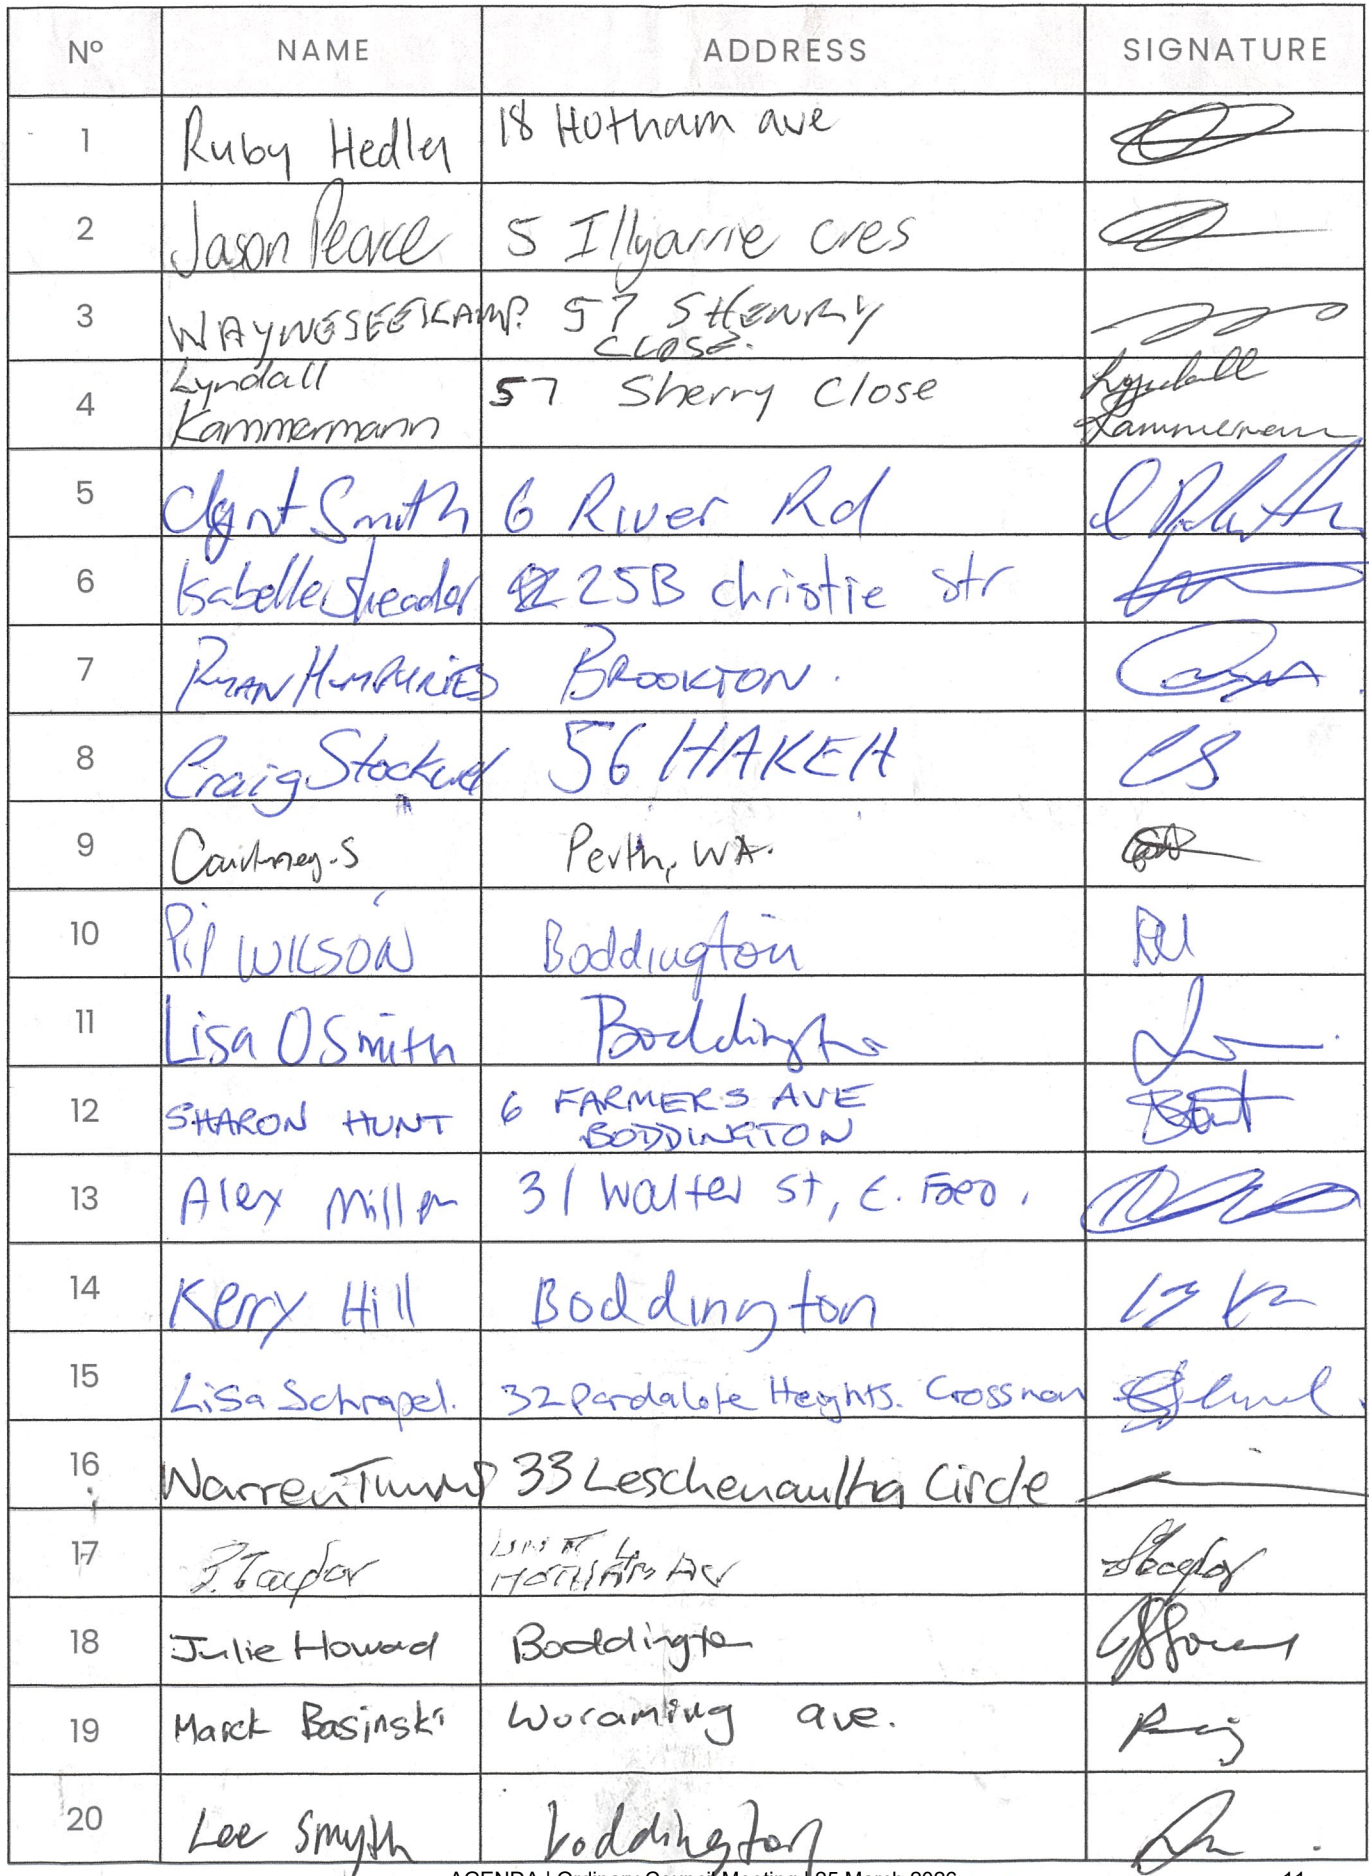 Nº NAME ADDRESS SIGNATURE
1 Ruby Hedley 18 Hotham ave
2 Jason Pearce 5 Illyarrie cres
3 WAYNE SEEKAMP. 57 SHERRY
CLOSE.
4 Lyndall 57 Sherry Close Lyndall
Kammermann Kammermann
5 Clynt Smith 6 River Rd
6 Isabelle Sheador 25B christie str
7 RYAN HUMPHRIES BROOKTON.
8 Craig Stockwel 56 HAKEA CS
9 Courtney.S Perth, WA.
10 PIP WILSON Boddington
11 Lisa O Smith Boddington
12 SHARON HUNT 6 FARMERS AVE
BODDINGTON
13 Alex Miller 31 Walter st, E. Freo.
14 Kerry Hill Boddington
15 Lisa Schrapel. 32 Pardalote Heights. Crossman
16 Warren 33 Leschenaultha Circle
17 Taylor UNIT 4
HOTHAM AV
18 Julie Howard Boddington
19 Marek Basinski Woraming ave.
20 Lee Smyth boddington
AGENDA | Ordinary Council Meeting | 25 March 2026 11